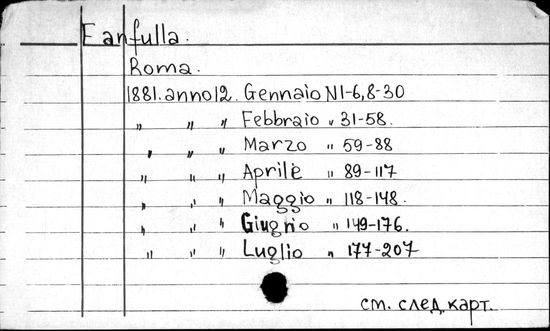 Fanfulla.
Roma.
1881. anno 12. Gennaio N 1-6, 8-30
" " " Febbraio " 31-58.
" " " Marzo " 59-88
" " " Aprile " 89-117
" " " Maggio " 118-148.
" " " Giugno " 149-176.
" " " Luglio " 177-207
см. след. карт.